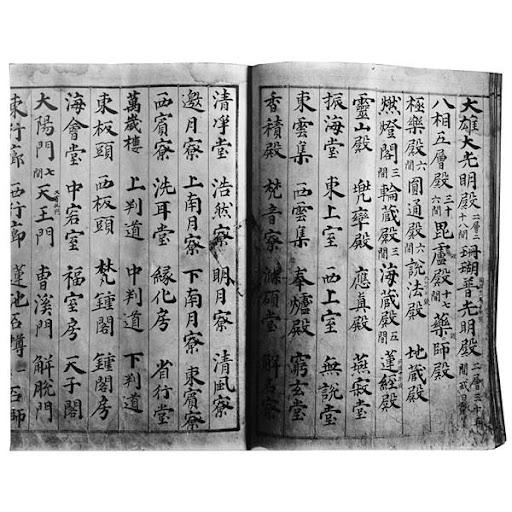 大雄大光明殿 二層三十八間 珊瑚普光明殿 二層三十
八相五層殿 三十六間 毘盧殿 間七 藥師殿
極樂殿 間六 圓通殿 間六 說法殿 地藏殿
燃燈閣 間三 輪藏殿 間三 海藏殿 間五 蓮經殿
靈山殿 兠率殿 應眞殿 燕寂堂
振海堂 東上室 西上室 無說堂
東雲集 西雲集 奉爐殿 窮玄堂
香積殿 梵音寮
清淨堂 浩然寮 明月寮 清風寮
邀月寮 上南月寮 下南月寮 東賓寮
西賓寮 洗耳堂 緣化房 省行堂
萬歲樓 上判道 中判道 下判道
東板頭 西板頭 梵鍾閣 鍾閣房
海會堂 中宕室 福室房 天子閣
大陽門 間七 天王門 曹溪門 解脫門
東行廊 西行廊 蓮池石